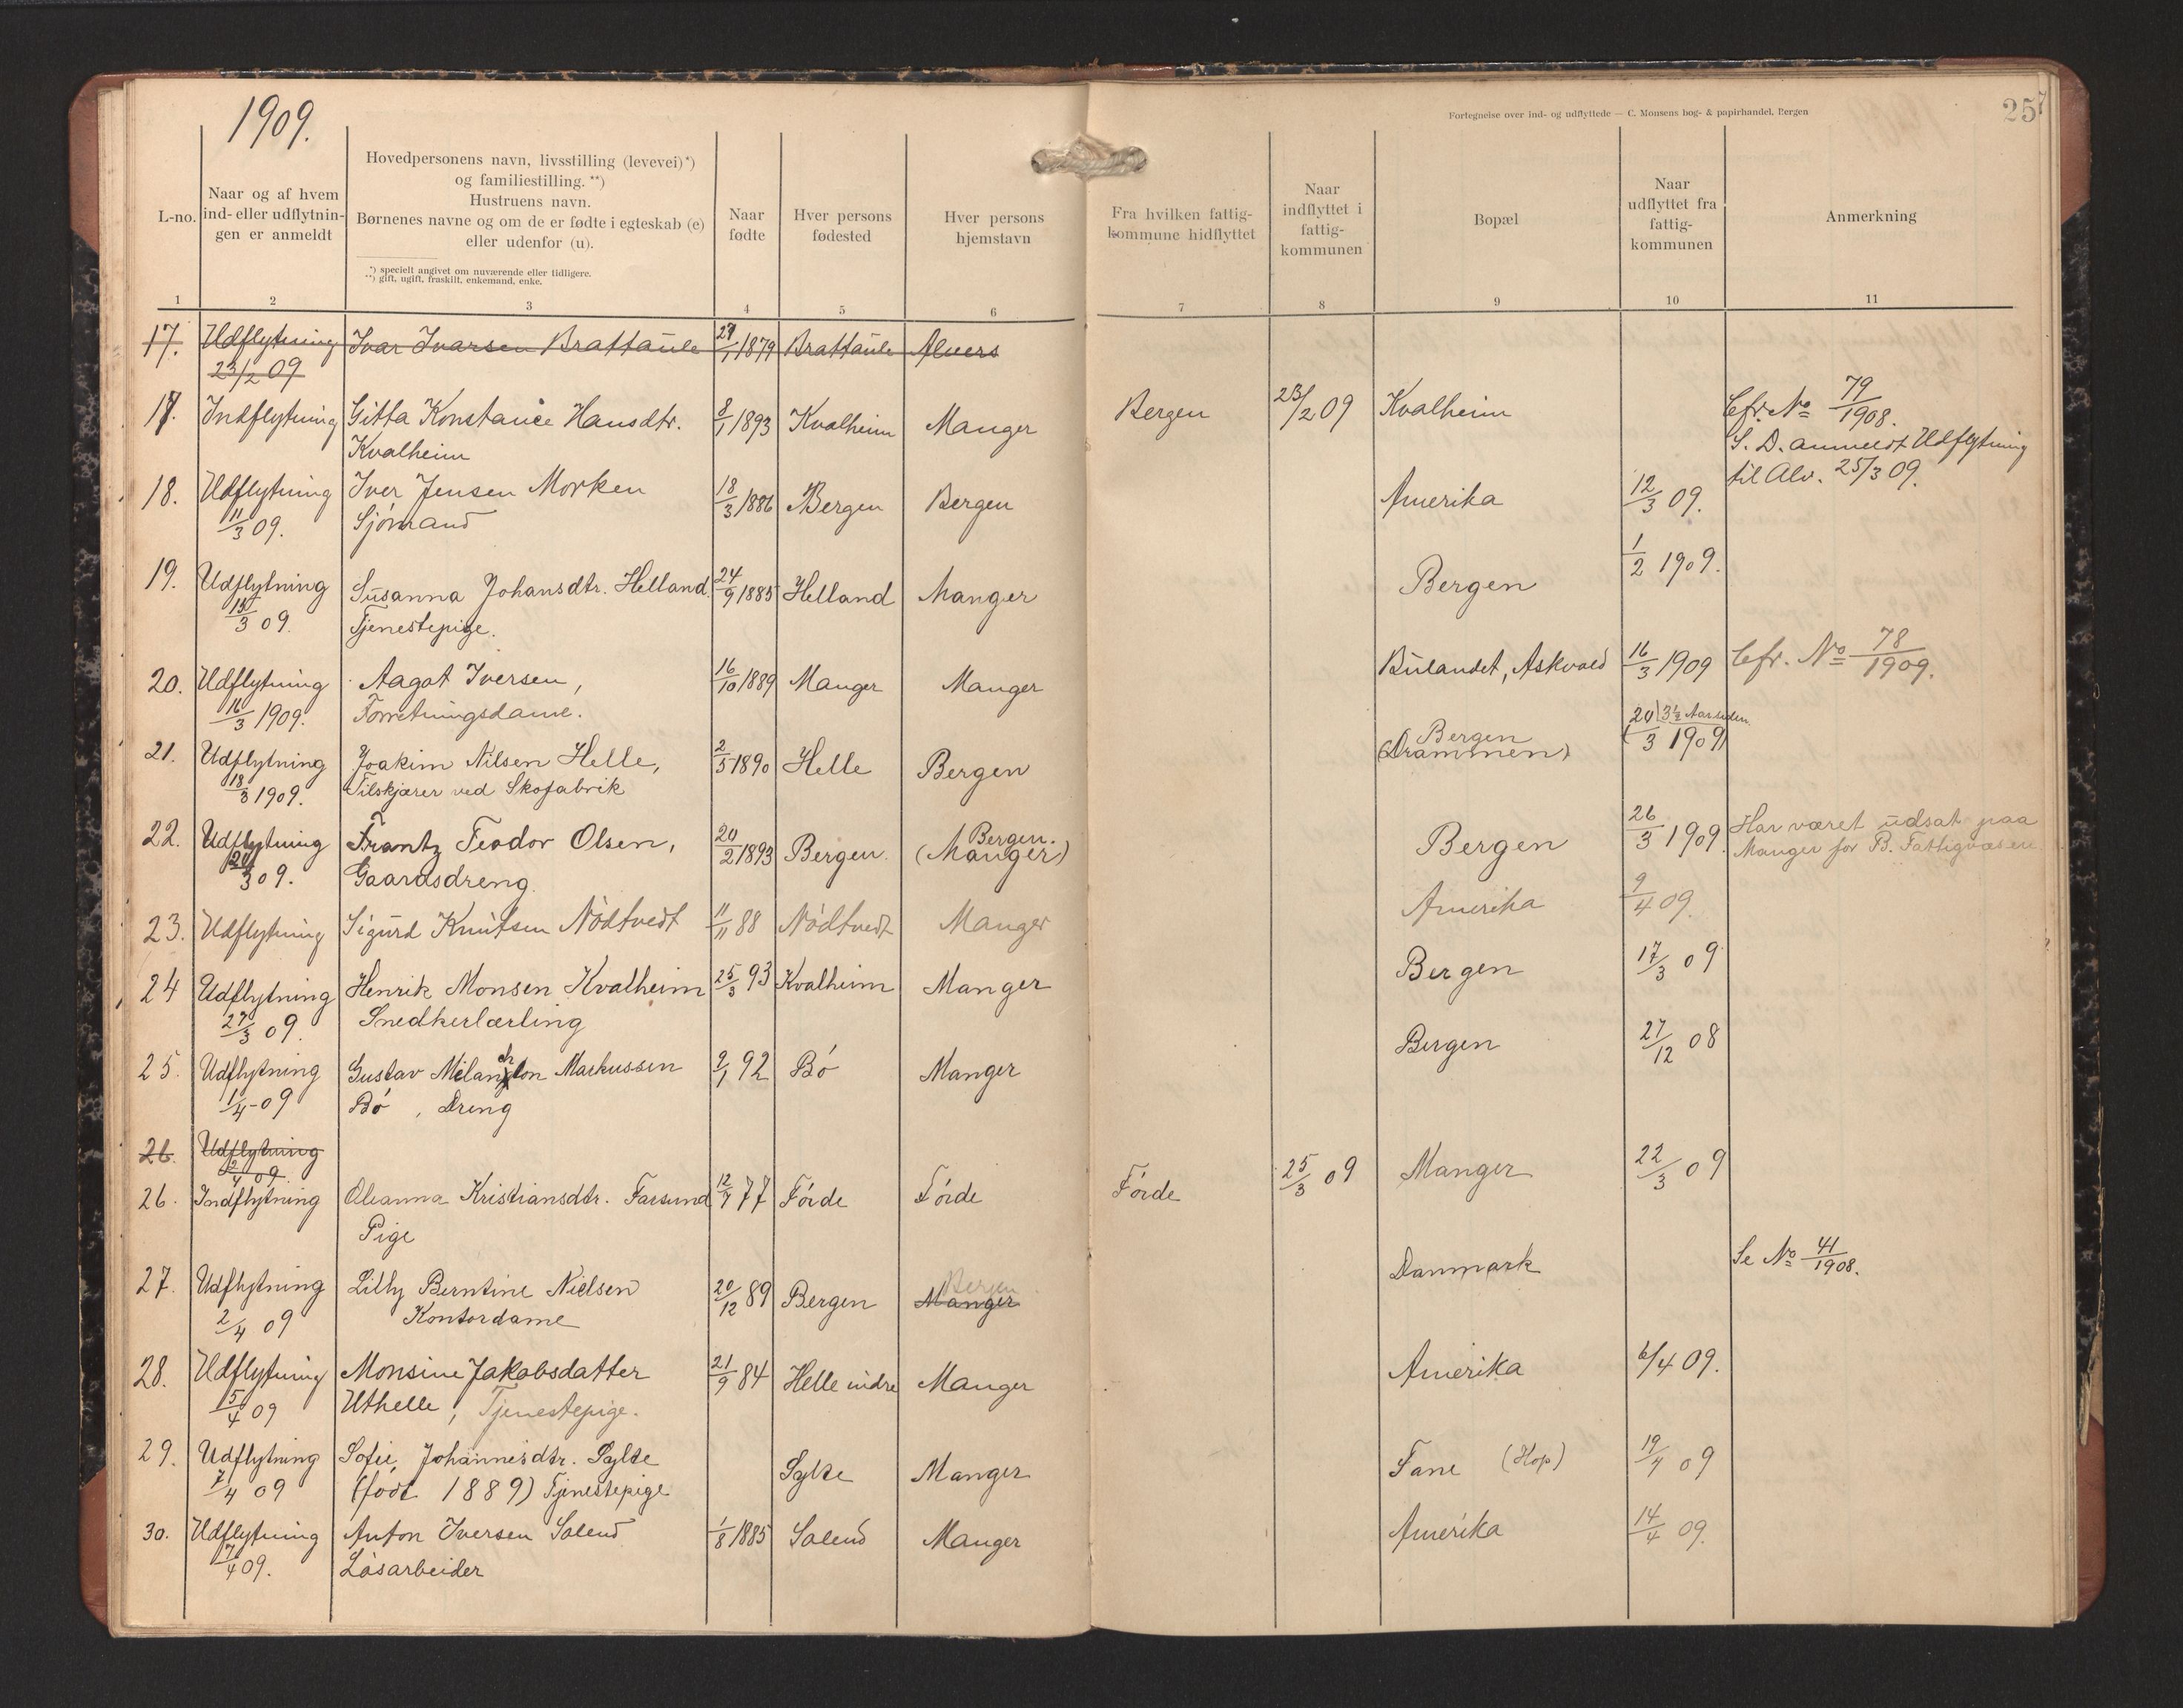 1909.
Fortegnelse over ind- og udflyttede — C. Monsens bog- & papirhandel, Bergen
257
L-no.
Naar og af hvem
ind- eller udflytnin-
gen er anmeldt
Hovedpersonens navn, livsstilling (levevei)*)
og familiestilling. **)
Hustruens navn.
Børnenes navne og om de er fødte i egteskab (e)
eller udenfor (u).
*) specielt angivet om nuværende eller tidligere.
**) gift, ugift, fraskilt, enkemand, enke.
Naar
fødte
Hver persons
fødested
Hver persons
hjemstavn
Fra hvilken fattig-
kommune hidflyttet
Naar
indflyttet i
fattig-
kommunen
Bopæl
Naar
udflyttet fra
fattig-
kommunen
Anmerkning
1 2 3 4 5 6 7 8 9 10 11
17. Udflytning Ivar Ivarsen Brattaule 29/1 1879 Brattaule Alvers
23/2 09
17. Indflytning Gitta Konstance Hansdtr. 8/1 1893 Kvalheim Manger Bergen 23/2 09 Kvalheim Cfr. No 79/1908.
Kvalheim S. D. anmeldt Udflytning
til Alv. 25/3 09.
18. Udflytning Iver Jensen Morken 18/3 1886 Bergen Bergen Amerika 12/3 09.
11/3 09. Sjömand
19. Udflytning Susanna Johansdtr. Helland 24/9 1885 Helland Manger Bergen 1/2 1909.
15/3 09. Tjenestepige.
20. Udflytning Aagot Iversen, 16/10 1889 Manger Manger Bulandet, Askvold 16/3 1909 Cfr. No 78/1909.
16/3 1909. Forretningsdame.
21. Udflytning Joakim Nilsen Helle, 2/5 1890 Helle Bergen Bergen (Drammen) 3½ Aar siden (20/3 1909)
18/3 1909. Tilskjærer ved Skofabrik
22. Udflytning Frantz Teodor Olsen, 20/2 1893 Bergen. Bergen. (Manger) Bergen 26/3 1909. Har været udsat paa
3 09. Gaardsdreng. Manger for B. Fattigvæsen
23. Udflytning Sigurd Knutsen Nödtvedt 11/11 88 Nödtvedt Manger Amerika 9/4 09.
24 Udflytning Henrik Monsen Kvalheim 25/3 93 Kvalheim Manger Bergen 17/3 09
27/3 09. Snedkerlærling
25. Udflytning Gustav Milanchton Markussen 9/1 92 Bö Manger Bergen 27/12 08
1/4-09 Bö, Dreng
26. Udflytning
2/4 09.
26. Indflytning Oleanna Kristiansdtr. Farsund 12/7 77 Förde Förde Förde 25/3 09 Manger 22/3 09
Pige
27. Udflytning Lilly Berntine Nielsen 20/12 89 Bergen Bergen Manger Danmark Se No 41/1908.
2/4 09 Kontordame
28. Udflytning Monsine Jakobsdatter 21/9 84 Helle indre Manger Amerika 6/4 09.
5/4 09 Uthelle, Tjenestepige.
29. Udflytning Sofie Johannesdtr. Sylte Sylte Manger Fane (Hop) 19/4 09
7/4 09 (födt 1889) Tjenestepige
30. Udflytning Anton Iversen Solend 1/8 1885 Solend Manger Amerika 14/4 09.
7/4 09. Lösarbeider